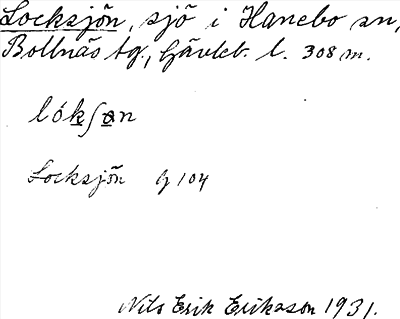 Locksjön, sjö i Hanebo sn,
Bollnäs tg., Gävleb. l. 308 m.
lókʃan
Locksjön G 104
Nils Erik Eriksson 1931.